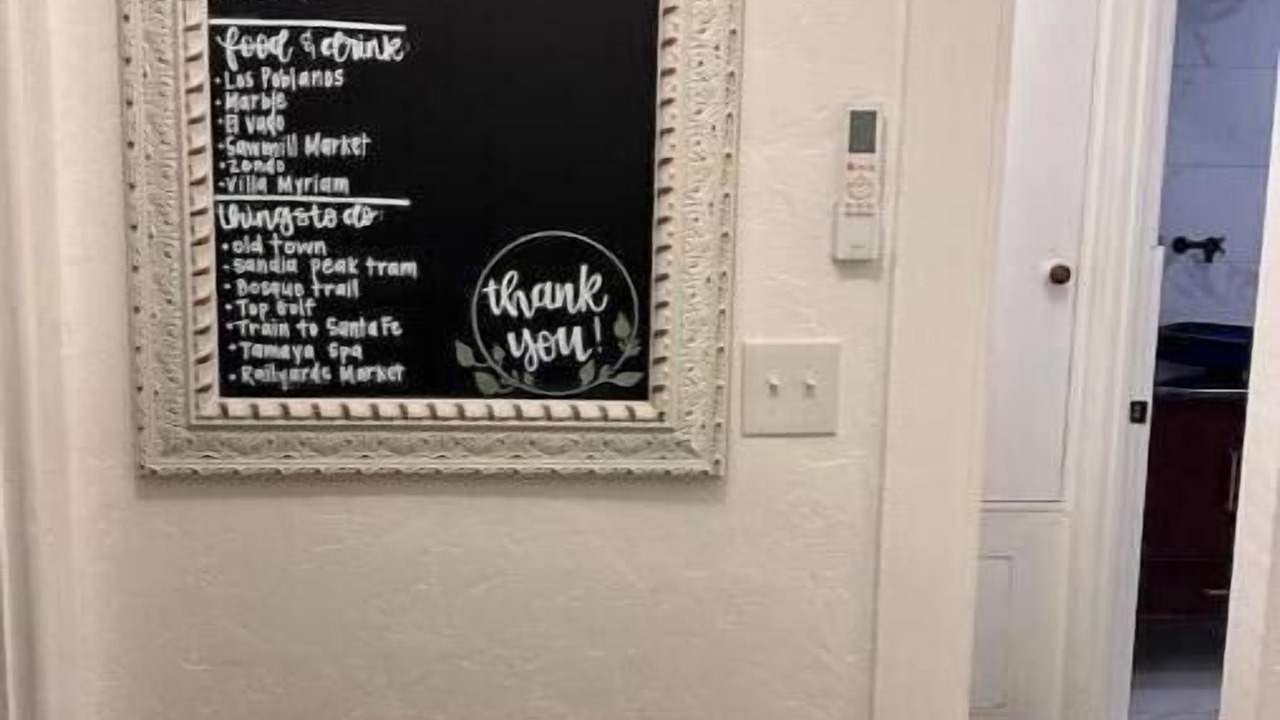 food & drink
• Los Poblanos
• Marble
• El Vado
• Sawmill Market
• Zendo
• Villa Myriam
things to do:
• old town
• sandia peak tram
• Bosque trail
• Top Golf
• Train to Santa Fe
• Tamaya Spa
• Railyards Market
thank
you!